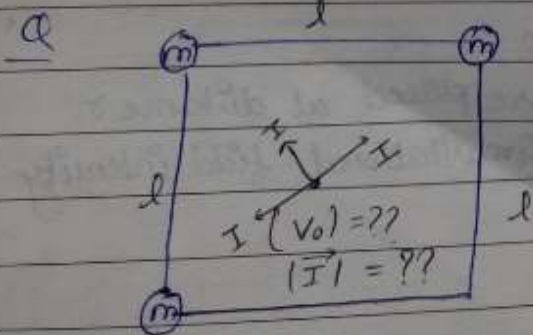 Q
l
m m
I I
l l
I (V₀) = ??
|I⃗| = ??
m